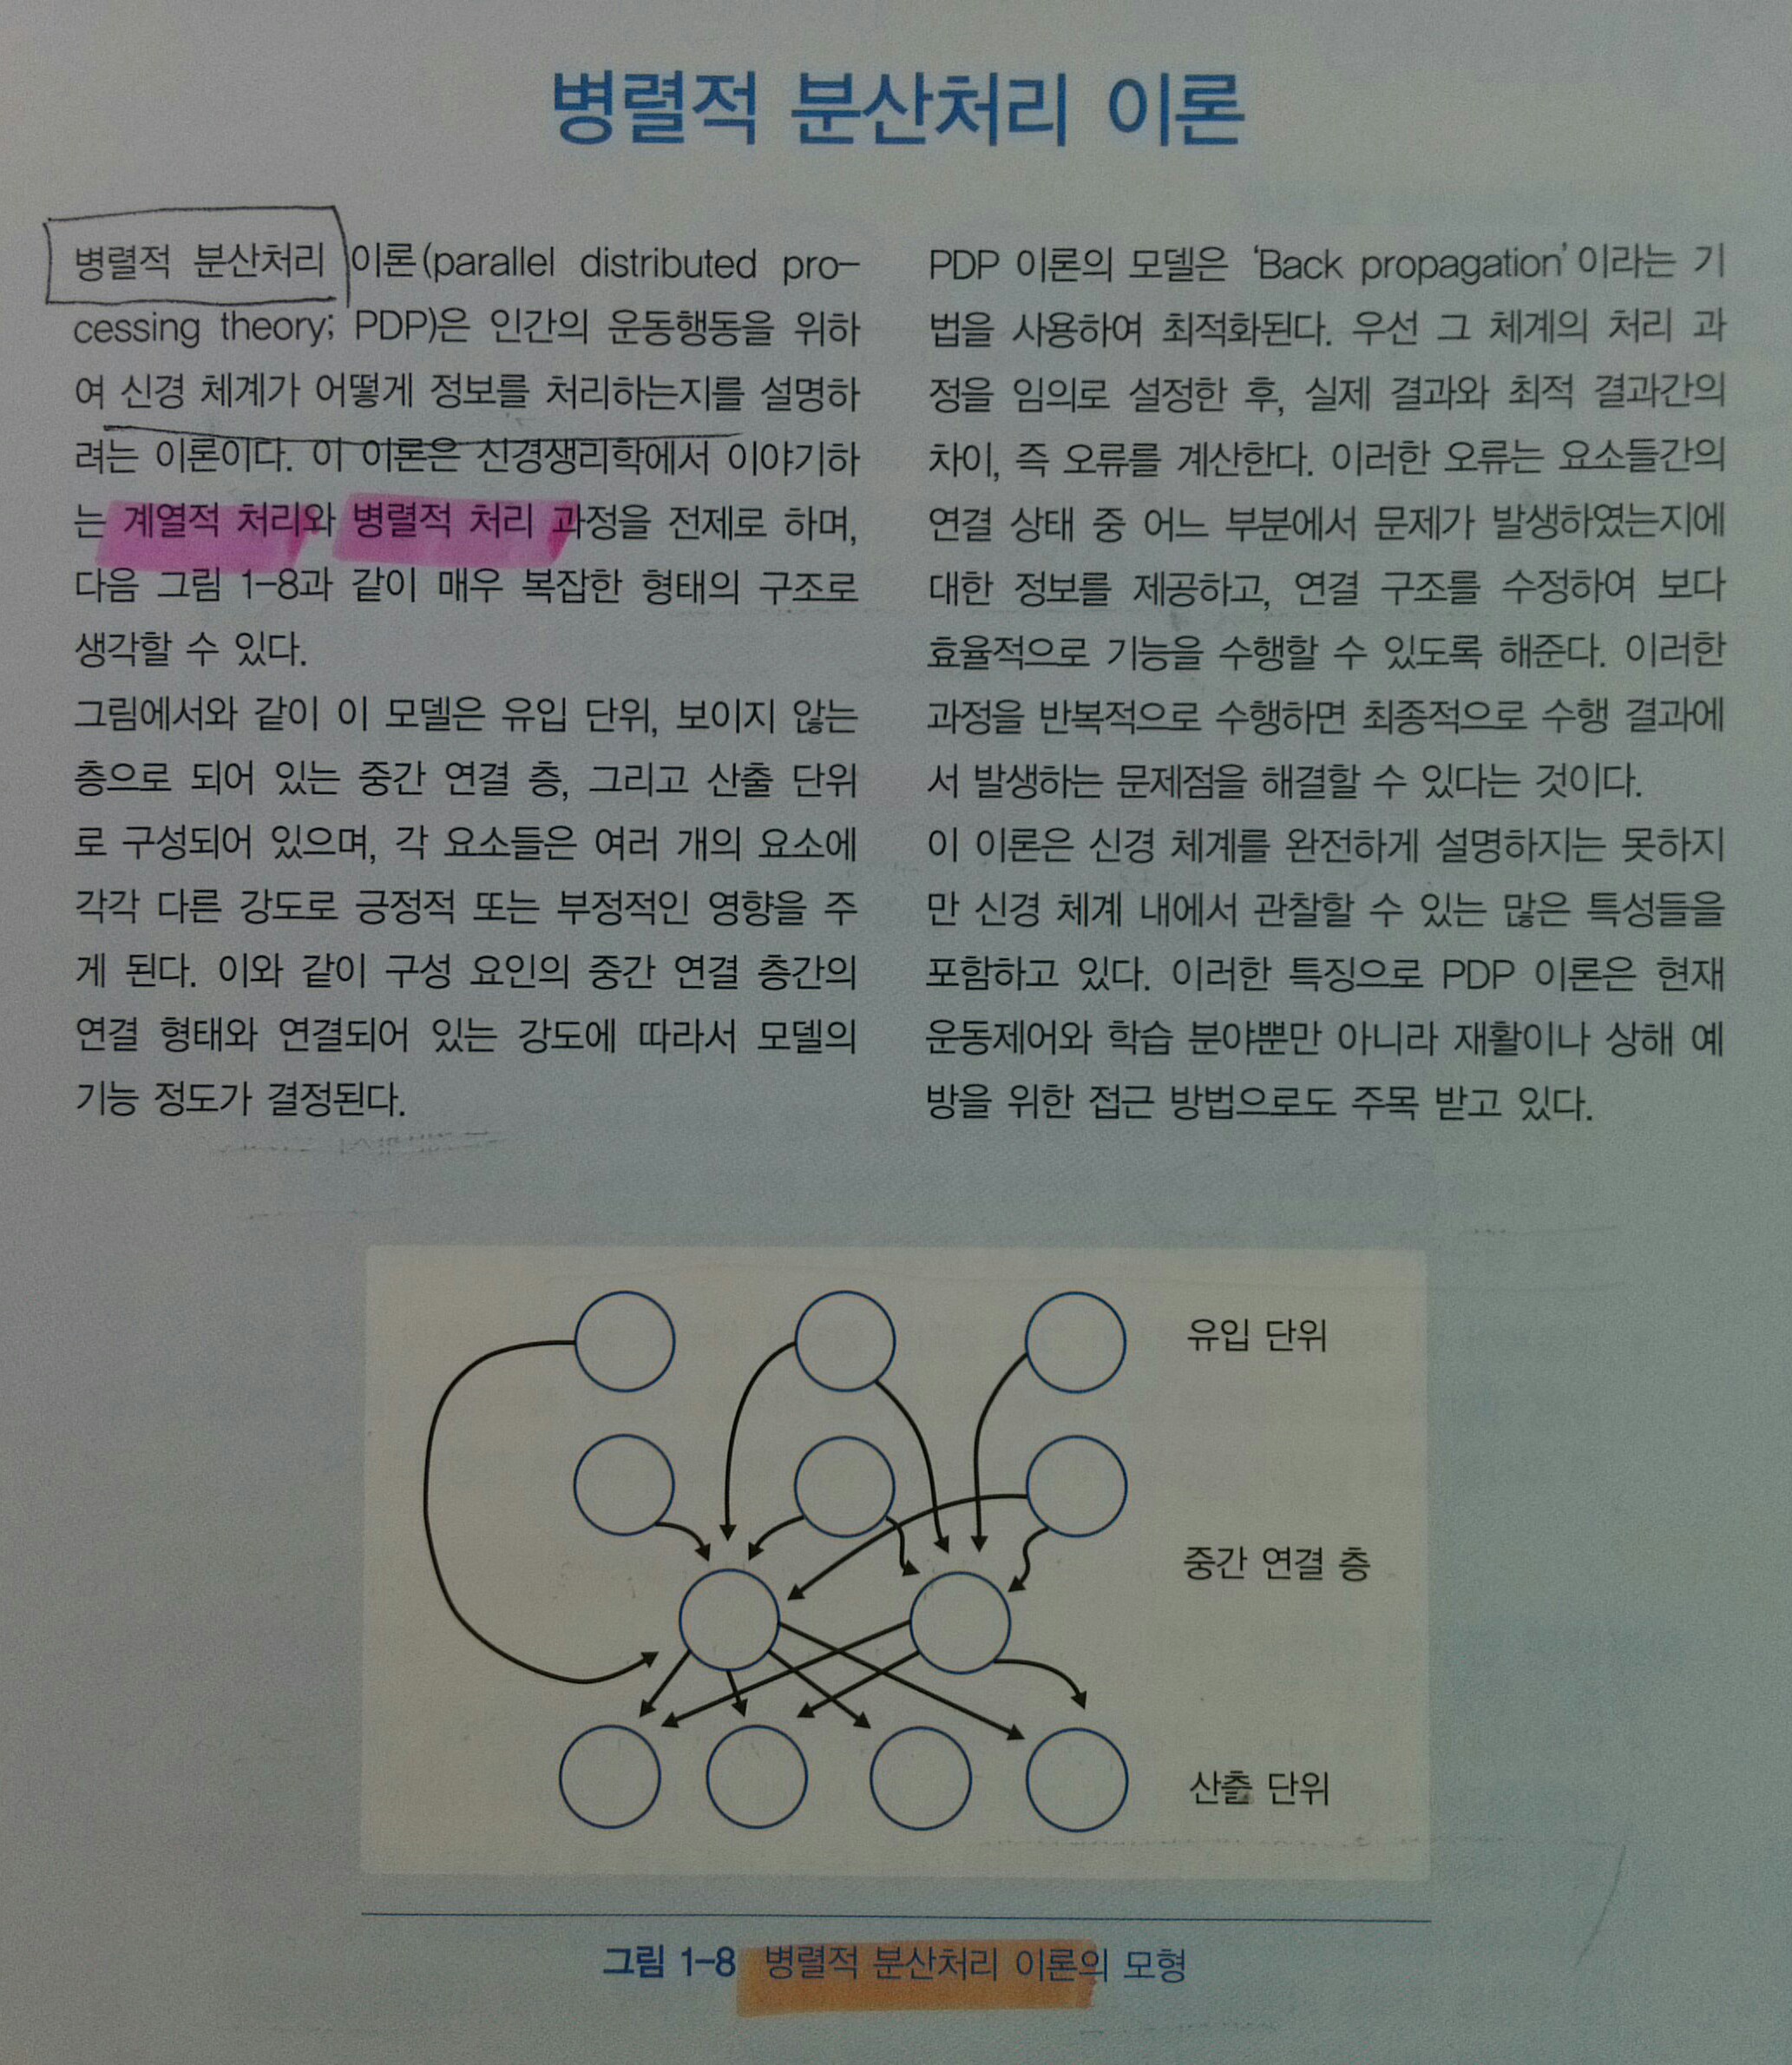 병렬적 분산처리 이론
병렬적 분산처리 이론(parallel distributed pro-
cessing theory; PDP)은 인간의 운동행동을 위하
여 신경 체계가 어떻게 정보를 처리하는지를 설명하
려는 이론이다. 이 이론은 신경생리학에서 이야기하
는 계열적 처리와 병렬적 처리 과정을 전제로 하며,
다음 그림 1-8과 같이 매우 복잡한 형태의 구조로
생각할 수 있다.
그림에서와 같이 이 모델은 유입 단위, 보이지 않는
층으로 되어 있는 중간 연결 층, 그리고 산출 단위
로 구성되어 있으며, 각 요소들은 여러 개의 요소에
각각 다른 강도로 긍정적 또는 부정적인 영향을 주
게 된다. 이와 같이 구성 요인의 중간 연결 층간의
연결 형태와 연결되어 있는 강도에 따라서 모델의
기능 정도가 결정된다.
PDP 이론의 모델은 ‘Back propagation’이라는 기
법을 사용하여 최적화된다. 우선 그 체계의 처리 과
정을 임의로 설정한 후, 실제 결과와 최적 결과간의
차이, 즉 오류를 계산한다. 이러한 오류는 요소들간의
연결 상태 중 어느 부분에서 문제가 발생하였는지에
대한 정보를 제공하고, 연결 구조를 수정하여 보다
효율적으로 기능을 수행할 수 있도록 해준다. 이러한
과정을 반복적으로 수행하면 최종적으로 수행 결과에
서 발생하는 문제점을 해결할 수 있다는 것이다.
이 이론은 신경 체계를 완전하게 설명하지는 못하지
만 신경 체계 내에서 관찰할 수 있는 많은 특성들을
포함하고 있다. 이러한 특징으로 PDP 이론은 현재
운동제어와 학습 분야뿐만 아니라 재활이나 상해 예
방을 위한 접근 방법으로도 주목 받고 있다.
유입 단위
중간 연결 층
산출 단위
그림 1-8 병렬적 분산처리 이론의 모형